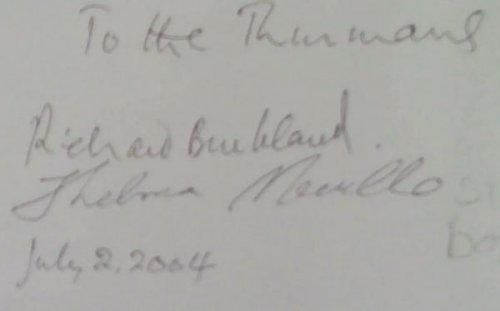 To the Thurmans
Richard Buckland.
Thelma
July 2. 2004